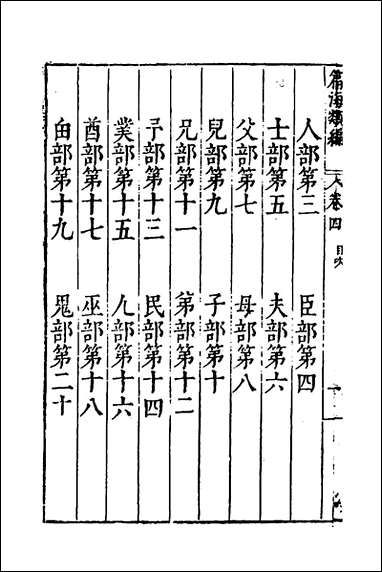 篇海類編 卷四 目次
人部第三 臣部第四
士部第五 夫部第六
父部第七 母部第八
兒部第九 子部第十
兄部第十一 弟部第十二
予部第十三 民部第十四
菐部第十五 儿部第十六
酋部第十七 巫部第十八
甶部第十九 鬼部第二十